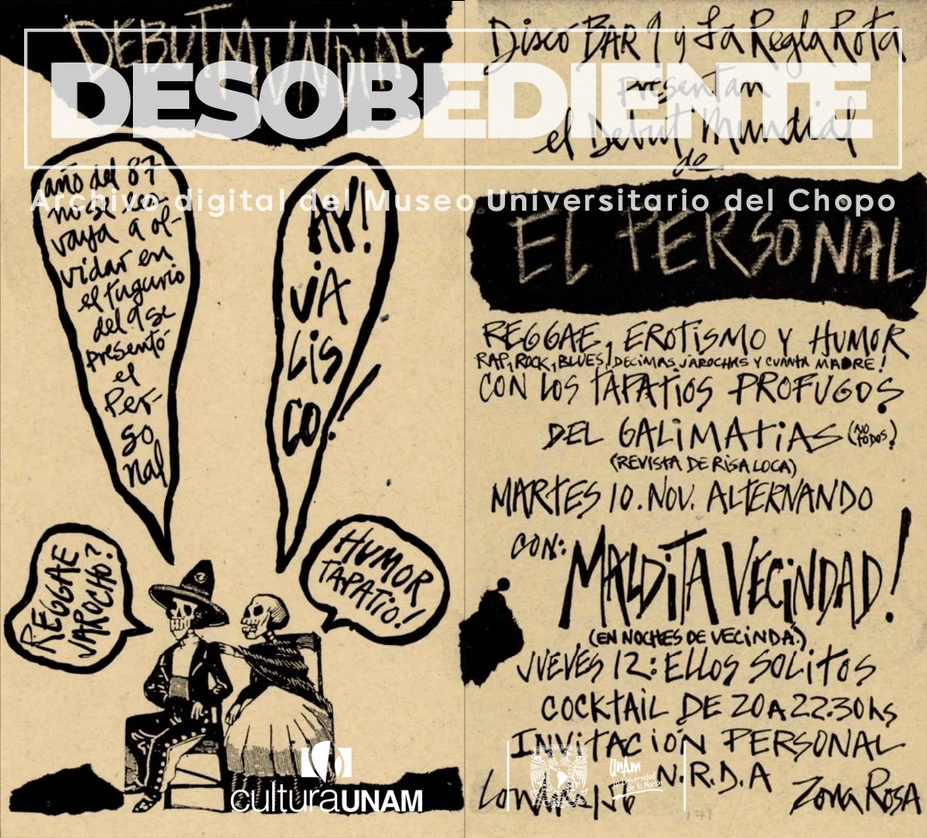 DEBUT MUNDIAL
DESOBEDIENTE
Archivo digital del Museo Universitario del Chopo
año del 87
no se les
vaya a ol-
vidar en
el tugurio
del 9 se
presentó
el
Per-
so
nal
AY!
JA
LIS
CO!
REGGAE
JAROCHO?
HUMOR
TAPATIO!
culturaUNAM
Disco BAR 9 y La Regla Rota
presentan
el Debut Mundial
de
EL PERSONAL
REGGAE, EROTISMO Y HUMOR
RAP, ROCK, BLUES, DECIMAS JAROCHAS Y CUANTA MADRE!
CON LOS TAPATIOS PROFUGOS
DEL GALIMATIAS (NO TODOS?)
(REVISTA DE RISA LOCA)
MARTES 10. NOV. ALTERNANDO
CON: MALDITA VECINDAD!
(EN NOCHES DE VECINDÁ.)
JUEVES 12: ELLOS SOLITOS
COCKTAIL DE 20 A 22.30 hs
INVITACIÓN PERSONAL
N.R.D.A
Londres 156 Zona ROSA
UNAM